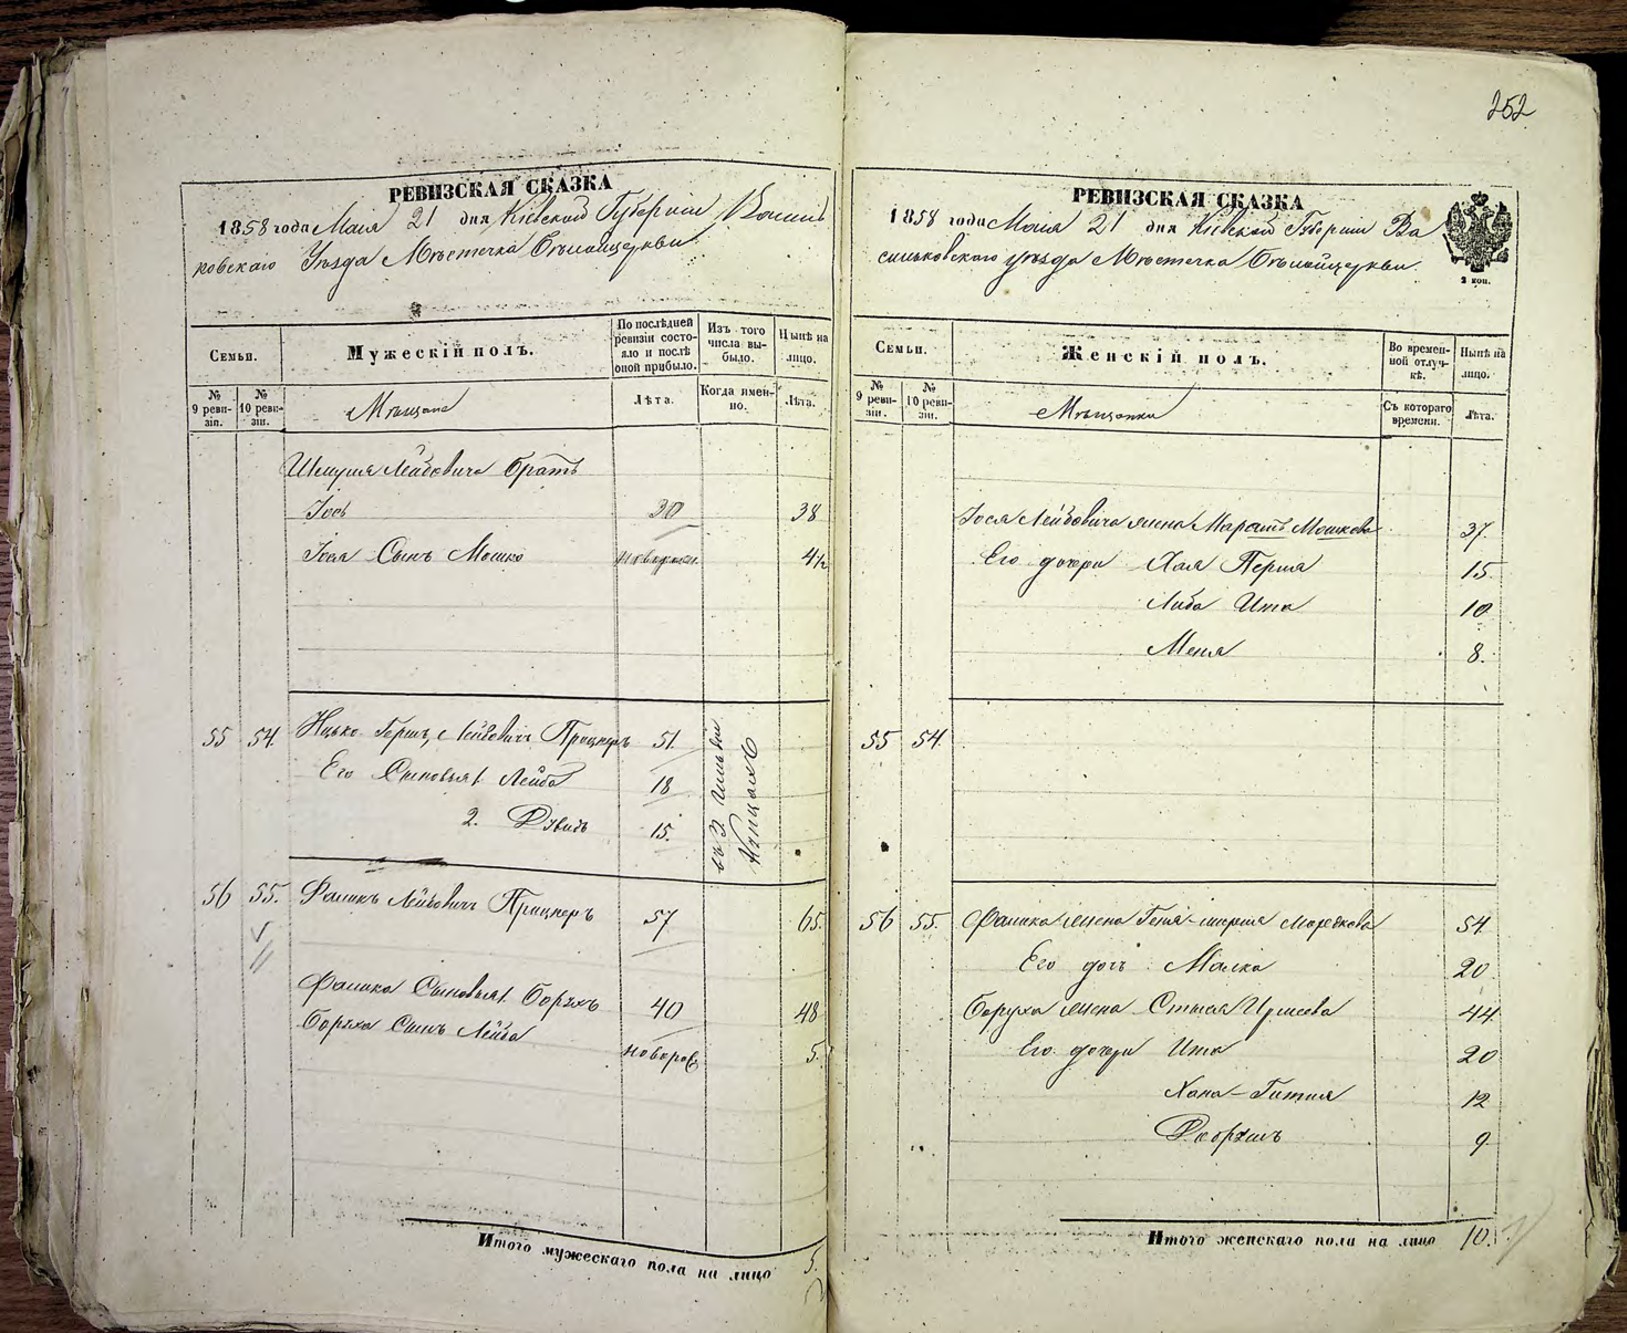 252
РЕВИЗСКАЯ СКАЗКА
1858 года Маія 21 дня Кіевской Губерніи
Уѣзда Мѣстечка Бѣлойцеркви
Семьи.
Мужескій полъ.
По послѣдней ревизіи состояло и послѣ оной прибыло.
Изъ того числа выбыло.
Нынѣ на лицо.
№ 9 ревизіи.
№ 10 ревизіи.
Мѣщане
Лѣта.
Когда именно.
Лѣта.
Шмуля Лейбовича братъ
Іось 30 38
Іося Сынъ Мошко новорожд. 4½
55 54. Ицько Гершъ Лейбовичъ Прицкеръ 51.
Его Сыновья 1. Лейба 18
2. Дувидъ 15.
въ 3 гильдіи Купцахъ
56 55. Фаликъ Лейбовичъ Прицкеръ 57 65.
Фалика Сыновья 1. Борухъ 40 48
Боруха Сынъ Лейба новорож 5.
Итого мужескаго пола на лицо 5.
РЕВИЗСКАЯ СКАЗКА
1858 года Маія 21 дня Кіевской Губерніи Ва
сильковскаго уѣзда Мѣстечка Бѣлойцеркви.
2 коп.
Семьи.
Женскій полъ.
Во временной отлучкѣ.
Нынѣ на лицо.
№ 9 ревизіи.
№ 10 ревизіи.
Мѣщанки
Съ котораго времени.
Лѣта.
Іося Лейбовича жена Мошкова 37.
Его дочери Хая Перля 15.
Либа Ита 10
Меня 8.
55 54.
56 55. Фалика жена Мордкова 54.
Его дочь Малка 20
Боруха жена Стыся 44
Его дочери Ита 20
Хана-Гитля 12
Двойра 9
Итого женскаго пола на лицо 10.